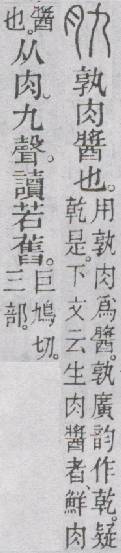 肍 孰肉醬也。用孰肉爲醬。孰廣韵作乾。疑乾是。下文云生肉醬者鮮肉
醬也。从肉九聲。讀若舊。巨鳩切。三部。